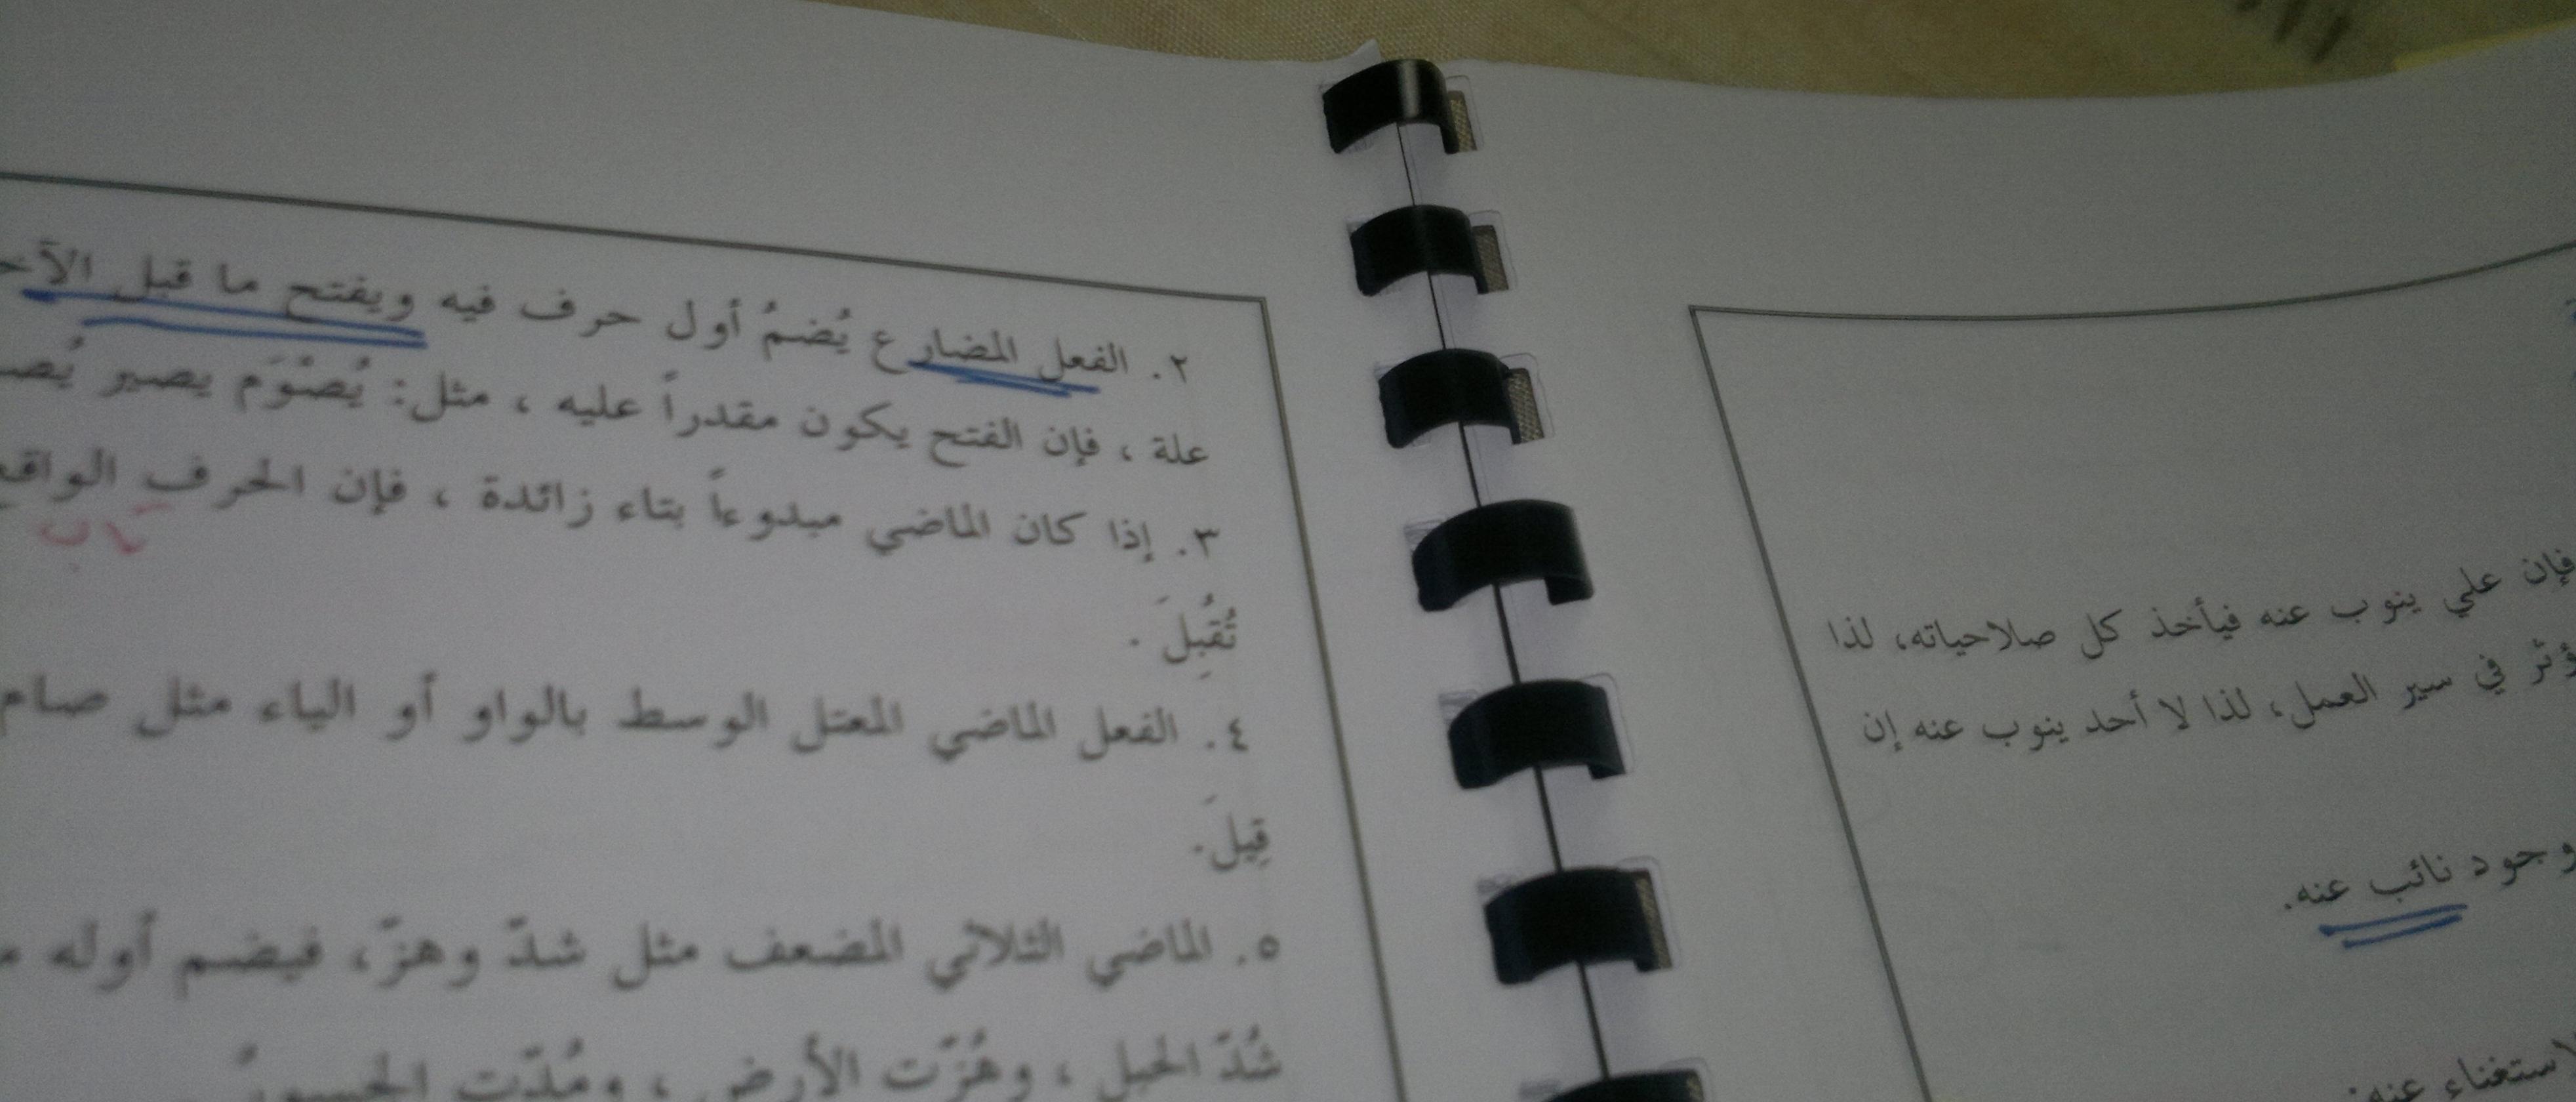 فإن علي ينوب عنه فيأخذ كل صلاحياته، لذا
في سير العمل، لذا لا أحد ينوب عنه إن
وجود نائب عنه.
عنه:
٢. الفعل المضارع يُضمُ أول حرف فيه ويفتح ما قبل
علة ، فإن الفتح يكون مقدراً عليه ، مثل: يُصْوَم يصير
٣. إذا كان الماضي مبدوءاً بتاء زائدة ، فإن الحرف
تُقُبِلَ .
٤. الفعل الماضي المعتل الوسط بالواو أو الياء مثل صام
قِيلَ.
٥. الماضي الثلاثي المضعف مثل شدّ وهزّ، فيضم أوله
شُدّ الحبل ، وهُزّت الأرض ، ومُدّت